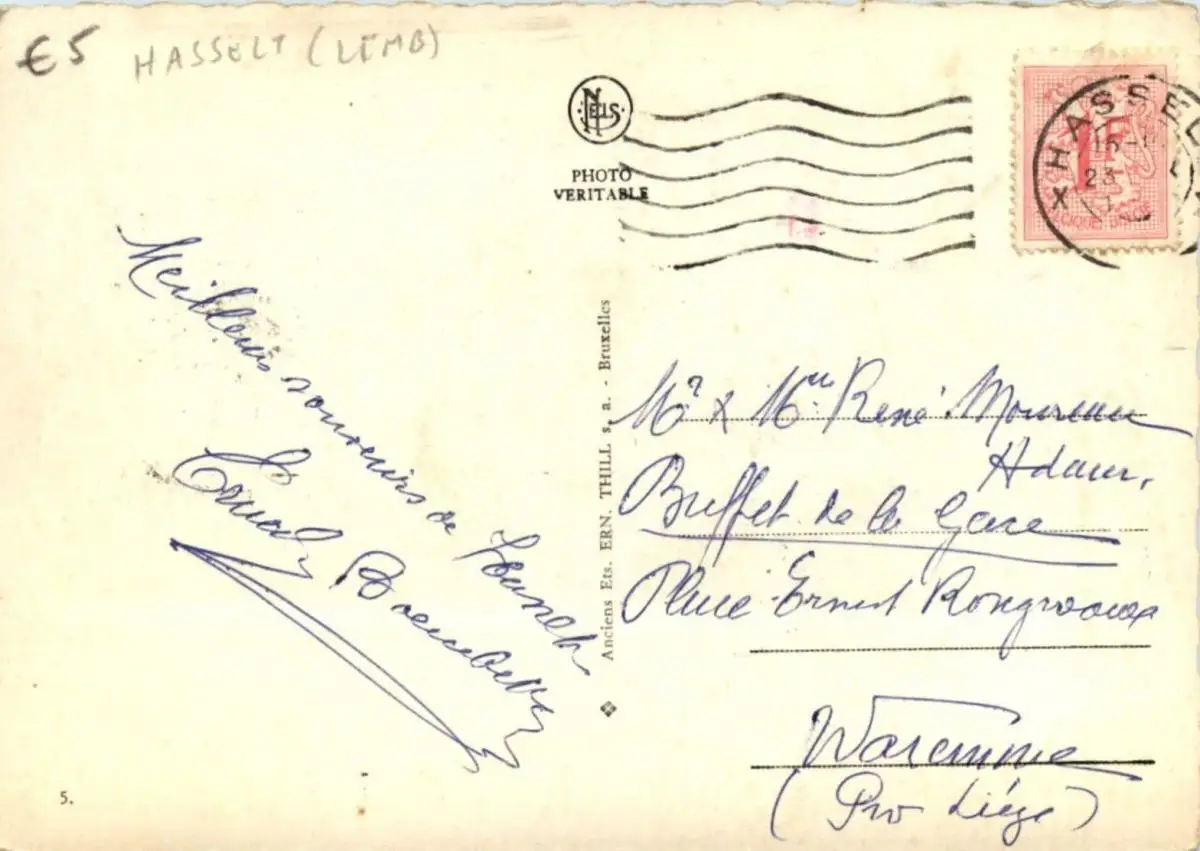 €5 HASSELT (LIMB)
NELS
PHOTO
VERITABLE
HASSEL
23
1F
BELGIQUE BELGIE
Meilleurs souvenirs de
Anciens Ets. ERN. THILL s. a. - Bruxelles
Mr & Me René Moureau
Adam,
Buffet de la Gare
Place Ernest Rongvaux
Waremme
(Pro Liége)
5.